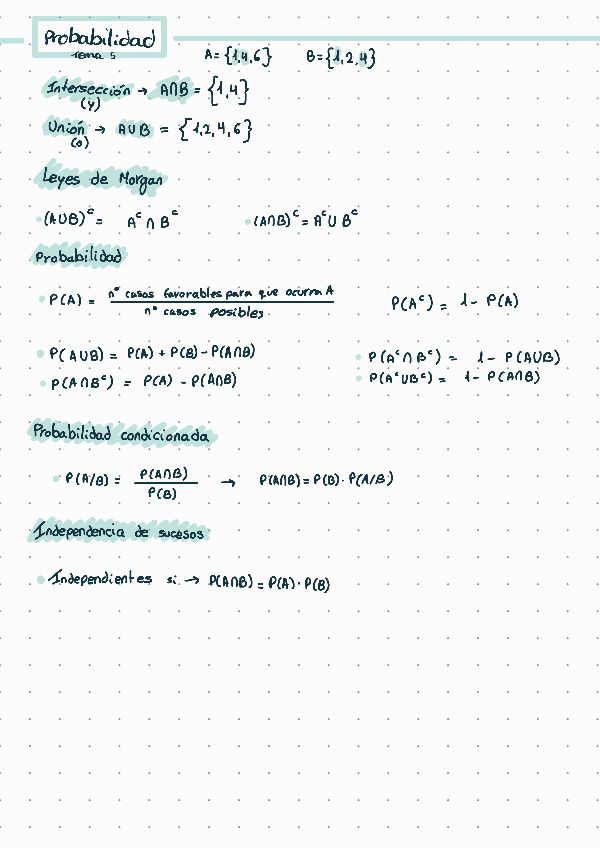 Probabilidad
Tema 5
A = {1,4,6} B = {1,2,4}
Intersección → A∩B = {1,4}
(y)
Unión → A∪B = {1,2,4,6}
(o)
Leyes de Morgan
(A∪B)ᶜ = Aᶜ ∩ Bᶜ (A∩B)ᶜ = Aᶜ∪Bᶜ
Probabilidad
P(A) = nº casos favorables para que ocurra A / nº casos posibles P(Aᶜ) = 1 - P(A)
P(A∪B) = P(A) + P(B) - P(A∩B) P(Aᶜ∩Bᶜ) = 1 - P(A∪B)
P(A∩Bᶜ) = P(A) - P(A∩B) P(Aᶜ∪Bᶜ) = 1 - P(A∩B)
Probabilidad condicionada
P(A/B) = P(A∩B) / P(B) → P(A∩B) = P(B) · P(A/B)
Independencia de sucesos
Independientes si → P(A∩B) = P(A) · P(B)